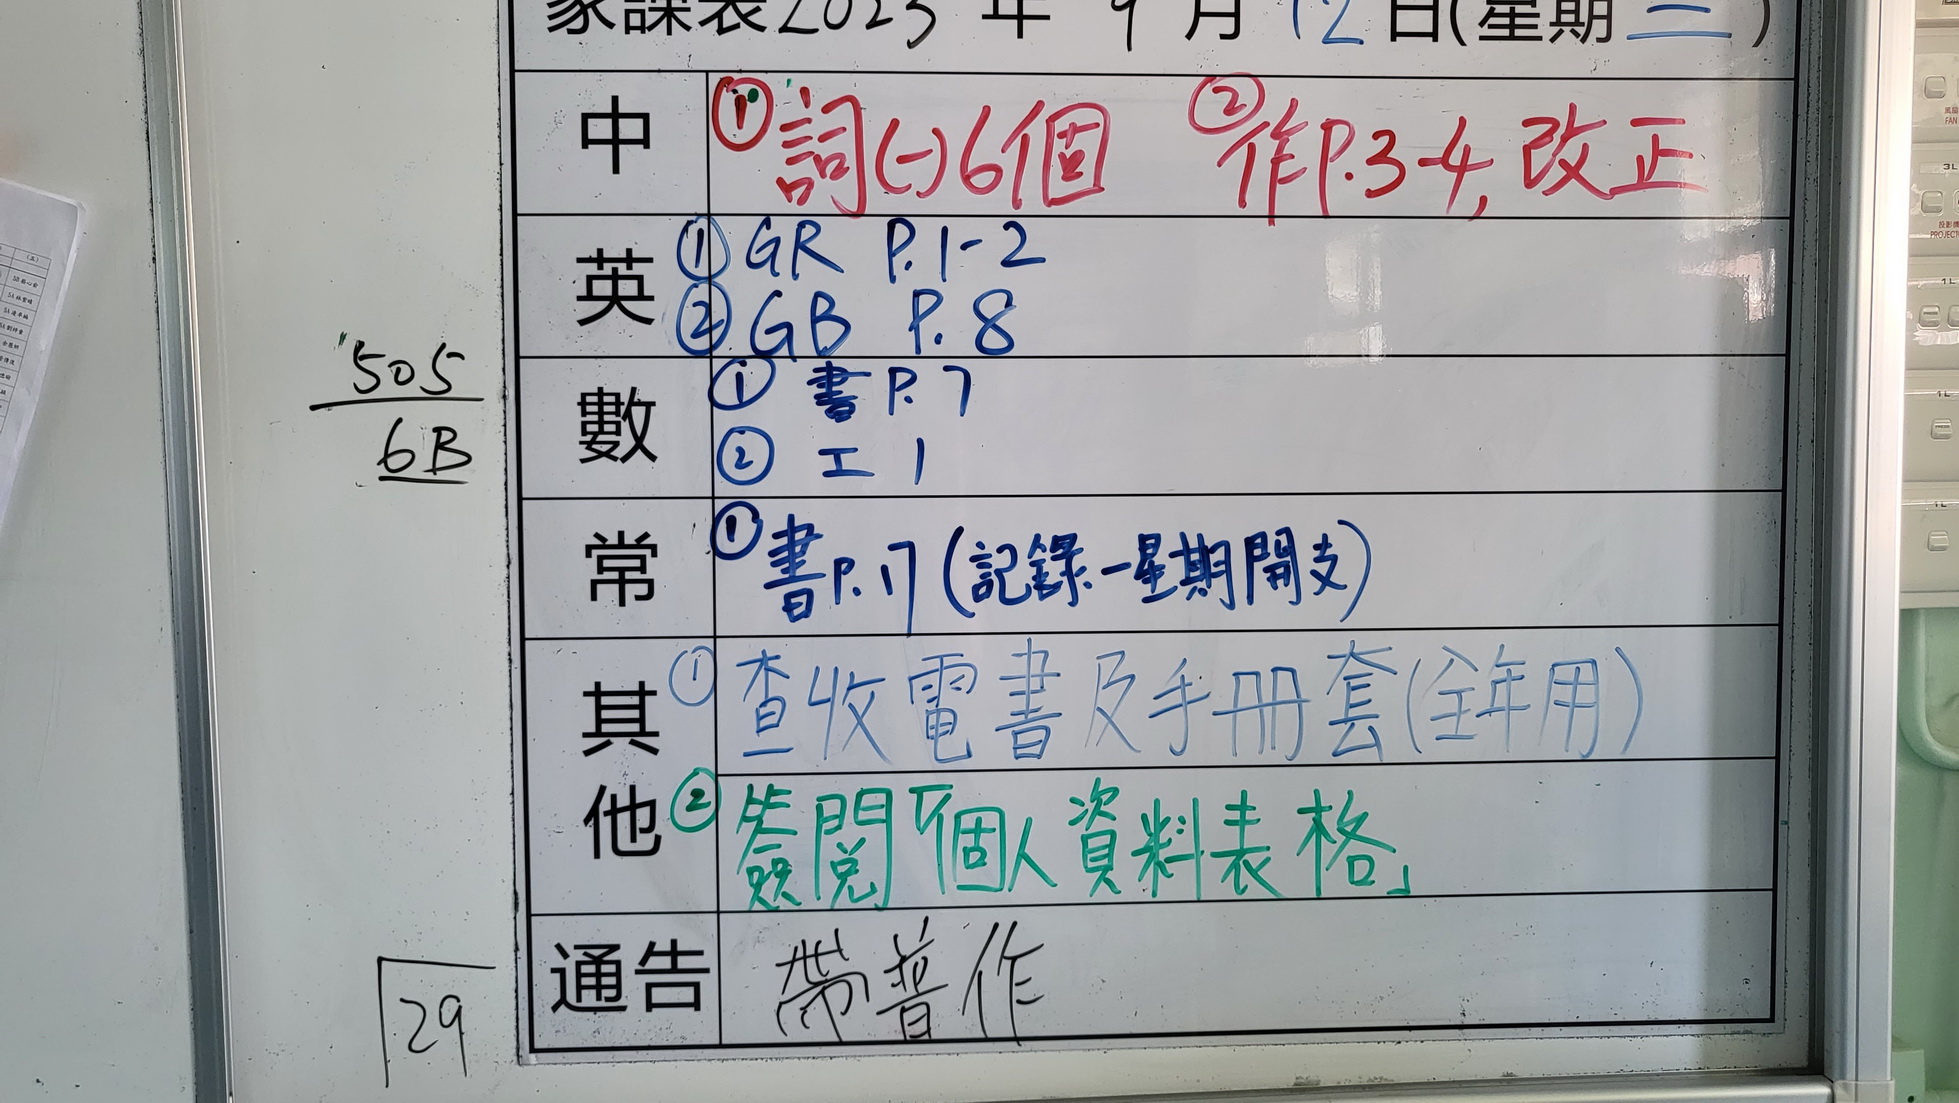 家課表2023 年 9 月 12 日(星期二)
中 ①詞(一)6個 ②作P.3-4, 改正
英 ① GR P.1-2
② GB P.8
數 ① 書 P.7
② 工 1
常 ① 書P.17 (記錄一星期開支)
其他 ① 查收電書及手冊套(全年用)
② 簽閱「個人資料表格」
通告 帶普作
505
6B
29
風扇
FAN
3L
投影機
PROJECT
1L
1L
1L